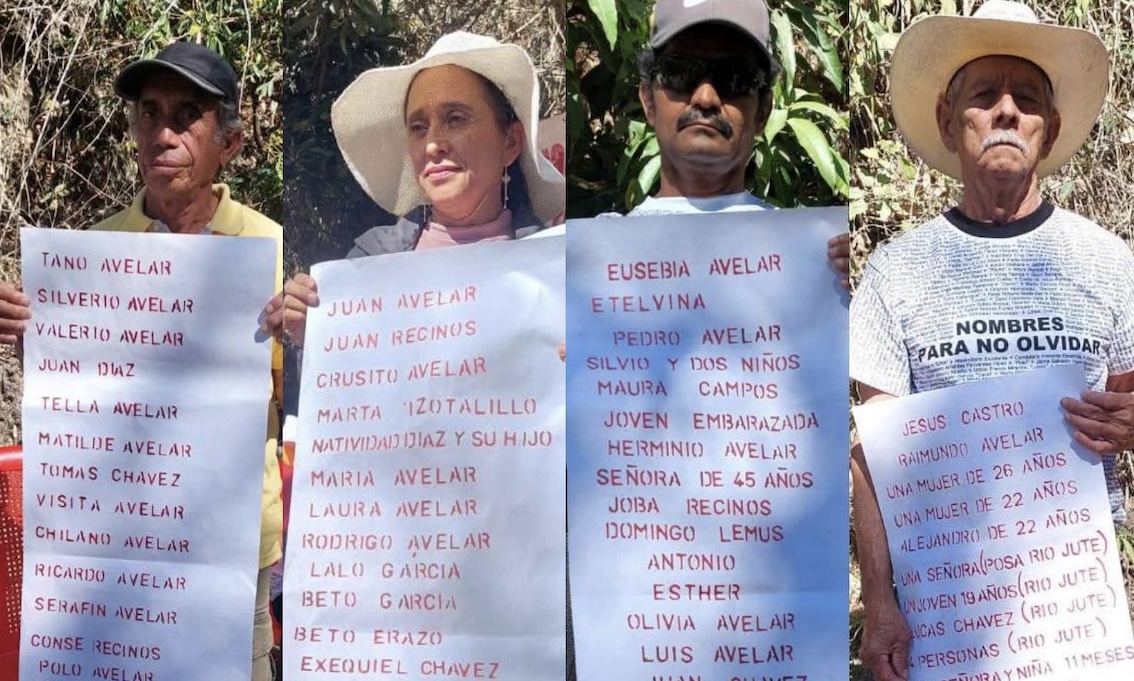 TANO AVELAR
SILVERIO AVELAR
VALERIO AVELAR
JUAN DIAZ
TELLA AVELAR
MATILDE AVELAR
TOMAS CHAVEZ
VISITA AVELAR
CHILANO AVELAR
RICARDO AVELAR
SERAFIN AVELAR
CONSE RECINOS
POLO AVELAR
JUAN AVELAR
JUAN RECINOS
CRUSITO AVELAR
MARTA IZOTALILLO
NATIVIDAD DIAZ Y SU HIJO
MARIA AVELAR
LAURA AVELAR
RODRIGO AVELAR
LALO GARCIA
BETO GARCIA
BETO ERAZO
EXEQUIEL CHAVEZ
EUSEBIA AVELAR
ETELVINA
PEDRO AVELAR
SILVIO Y DOS NIÑOS
MAURA CAMPOS
JOVEN EMBARAZADA
HERMINIO AVELAR
SEÑORA DE 45 AÑOS
JOBA RECINOS
DOMINGO LEMUS
ANTONIO
ESTHER
OLIVIA AVELAR
LUIS AVELAR
JUAN CHAVEZ
NOMBRES
PARA NO OLVIDAR
JESUS CASTRO
RAIMUNDO AVELAR
UNA MUJER DE 26 AÑOS
UNA MUJER DE 22 AÑOS
ALEJANDRO DE 22 AÑOS
UNA SEÑORA (POSA RIO JUTE)
UN JOVEN 19 AÑOS (RIO JUTE)
LUCAS CHAVEZ (RIO JUTE)
4 PERSONAS (RIO JUTE)
SEÑORA Y NIÑA 11 MESES